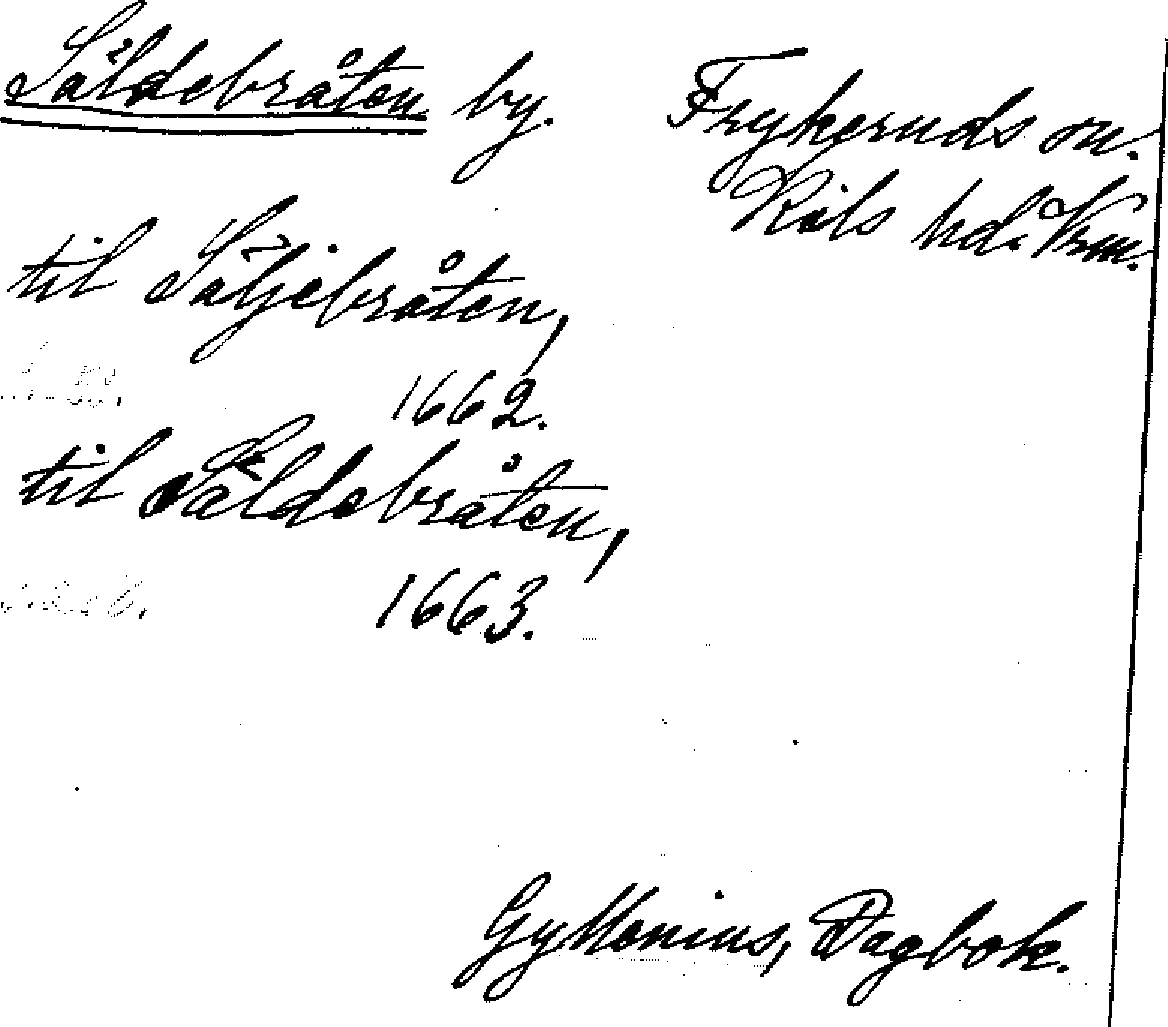 Säldebråten by. Frykeruds sn.
Kils hd. Vrm.
til Säljebråten,
1662.
til Säldebråten,
1663.
Gyllenius, Dagbok.